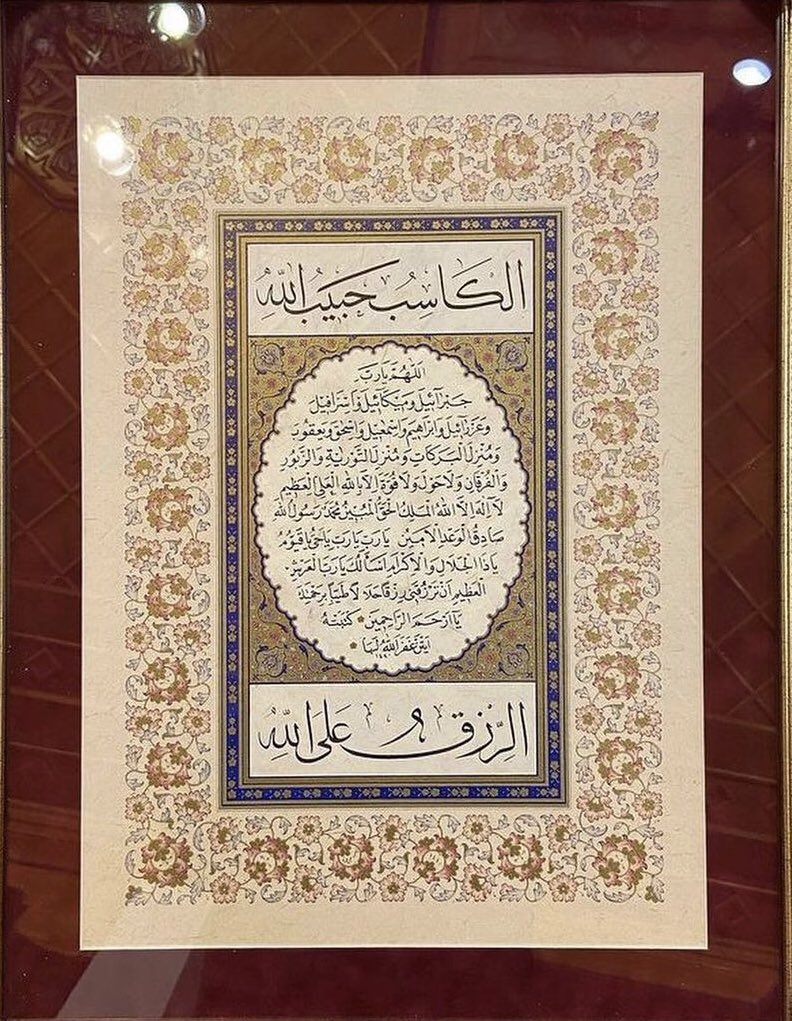 الكَاسِبُ حَبيبُ اللّٰهِ
اَللّٰهُمَّ يَارَبَّ
جَبْرَآئِيلَ وَمِيكَآئِيلَ وَاِسْرَافِيلَ
وَعَزْرَائِيلَ وَاِبْرَاهِيمَ وَاِسْمٰعِيلَ وَاِسْحٰقَ وَيَعْقُوبَ
وَمُنْزِلَ الْبَرَكَاتِ وَمُنْزِلَ التَّوْرٰيةِ وَالزَّبُورِ
وَالْفُرْقَانِ وَلَاحَوْلَ وَلَاقُوَّةَ اِلَّا بِاللّٰهِ الْعَلِيِّ الْعَظِيمِ
لَآ اِلٰهَ اِلَّا اللّٰهُ الْمَلِكُ الْحَقُّ الْمُبِينُ مُحَمَّدٌ رَسُولُ اللّٰهِ
صَادِقُ الْوَعْدِ الْاَمِينِ يَارَبِّ يَارَبِّ يَاحَيُّ يَاقَيُّومُ
يَاذَا الْجَلَالِ وَالْاِكْرَامِ اَسْأَلُكَ يَارَبَّ الْعَرْشِ
الْعَظِيمِ اَنْ تَرْزُقَنِي رِزْقًا حَلَالًا طَيِّبًا بِرَحْمَتِكَ
يَآ اَرْحَمَ الرَّاحِمِينَ كَتَبَتْهُ
غَفَرَ اللّٰهُ لَهَا
الرِّزْقُ عَلَى اللّٰهِ